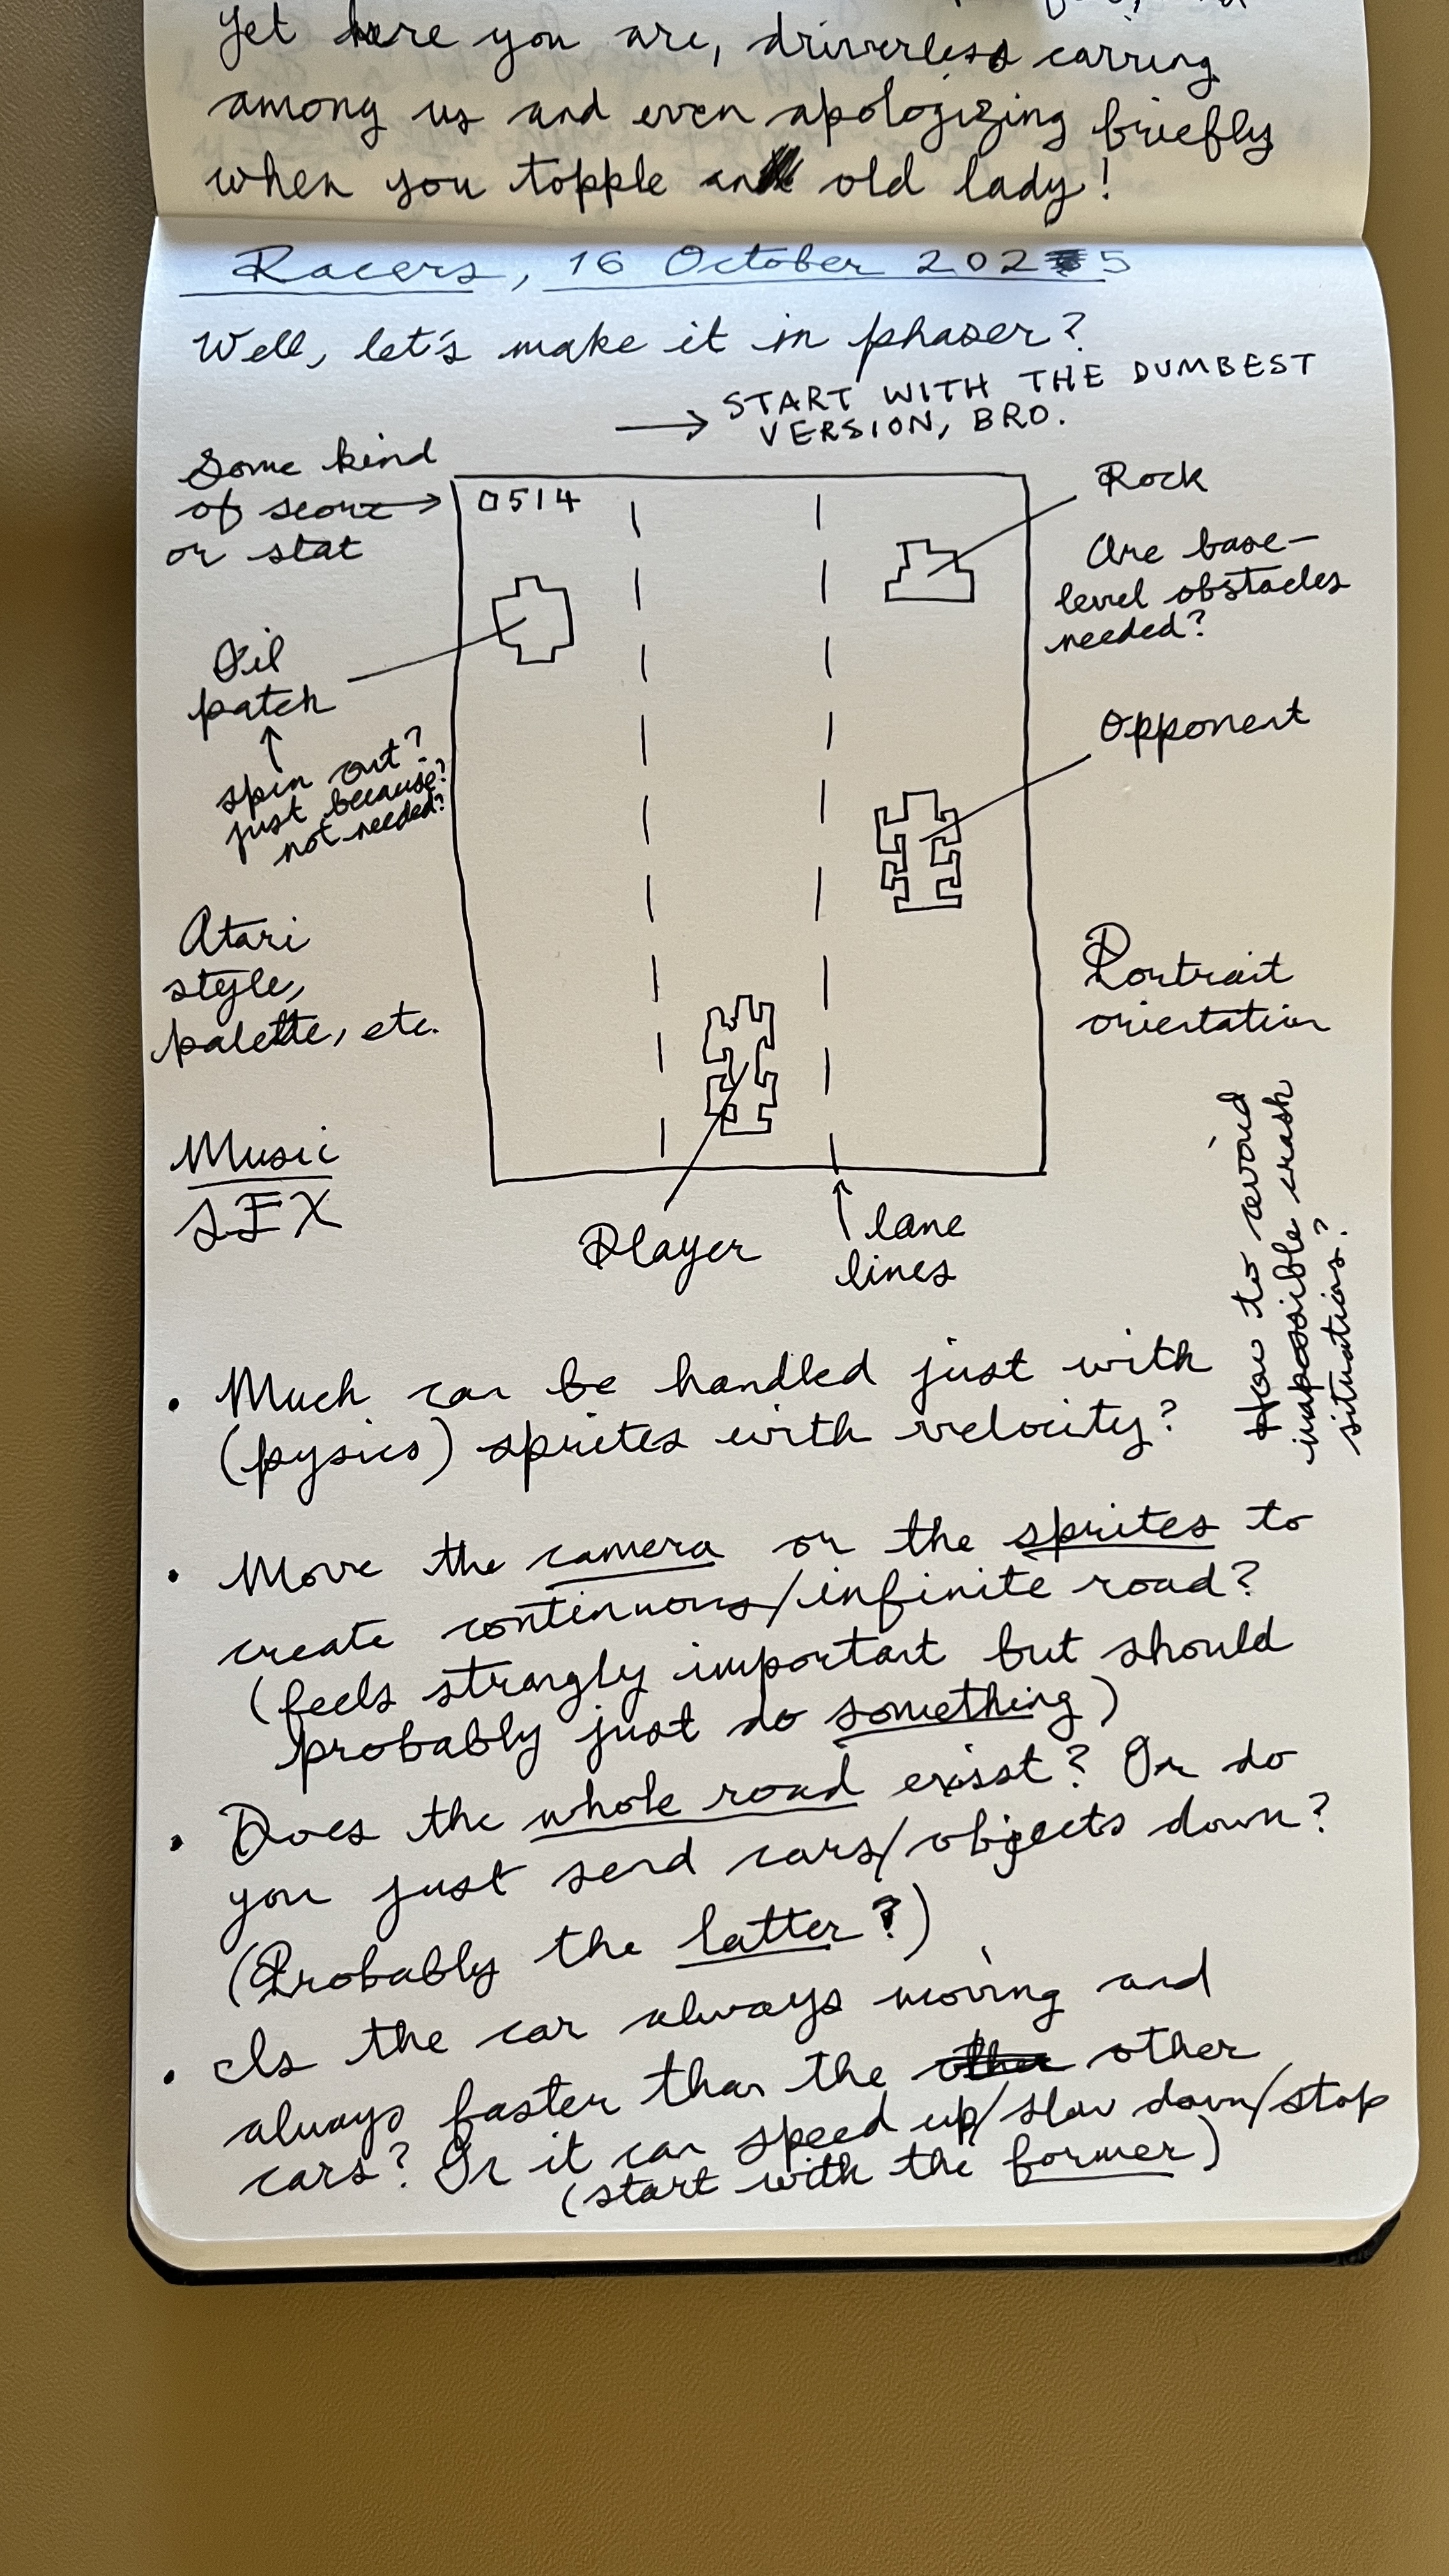 Yet here you are, driverless carring
among us and even apologizing briefly
when you topple an old lady!
Racers, 16 October 2025
Well, let's make it in phaser?
→ START WITH THE DUMBEST
VERSION, BRO.
Some kind
of score →
or stat
0514
Rock
Are base-
level obstacles
needed?
Oil
patch
↑
spin out?
just because?
not needed?
Opponent
Atari
style,
palette, etc.
Portrait
orientation
Music
SFX
Player
↑ lane
lines
How to avoid
impossible crash
situations?
• Much can be handled just with
(pysics) sprites with velocity?
• Move the camera or the sprites to
create continuous/infinite road?
(feels strangly important but should
probably just do something)
• Does the whole road exisst? Or do
you just send cars/objects down?
(Probably the latter?)
• Is the car always moving and
always faster than the other
cars? Or it can speed up/slow down/stop
(start with the former)